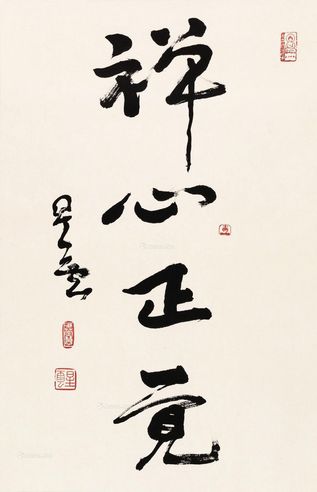 禅心正觉
星雲